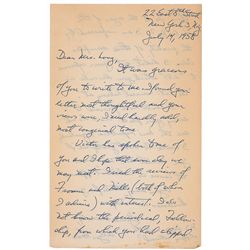 22 East 8th Street
New York 3, NY
July 14, 1958
Dear Mrs. Long,
It was gracious
of you to write to me. I found your
letter most thoughtful and your
views were, I need hardly add,
most congenial to me.
Victor has spoken to me of
you and I hope that some day we
may meet. I read the reviews of
Fromm and Mills (both of whom
I admire) with interest. I do
not know the periodical, Fellow-
ship, from which you had clipped